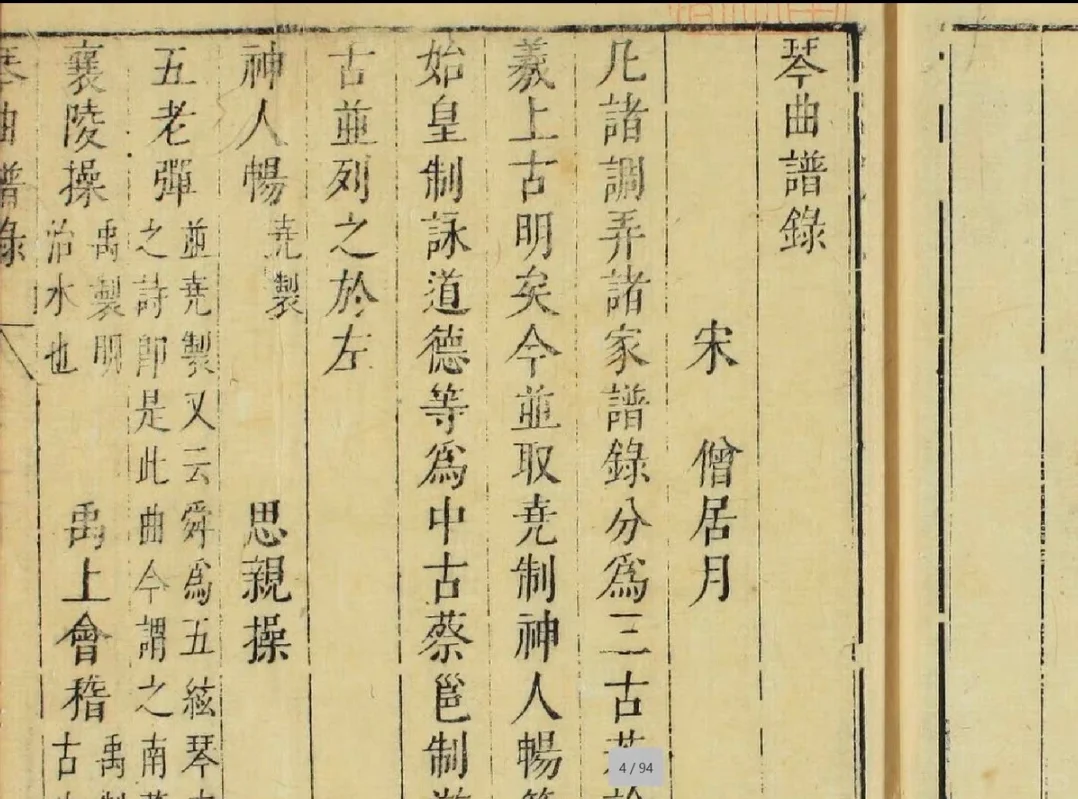 琴曲譜錄
宋 僧居月
凡諸調弄諸家譜錄分爲三古若
羲上古明矣今並取堯制神人暢
始皇制詠道德等爲中古蔡邕制
古並列之於左
神人暢 堯製 思親操
五老彈 並堯製又云舜爲五絃琴
之詩即是此曲今謂之南
襄陵操 禹製明
治水也 禹上會稽 禹
古
琴曲譜錄
4 / 94